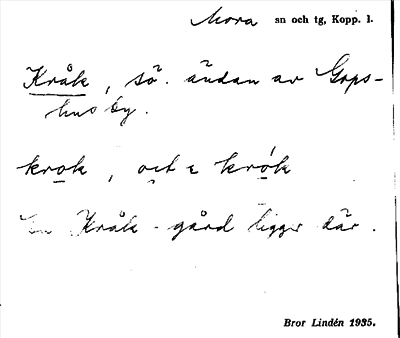 Mora sn och tg, Kopp. l.
Kråk, sö. ändan av Gops-
hus by.
krok, och krók
En Kråk-gård ligger där.
Bror Lindén 1935.